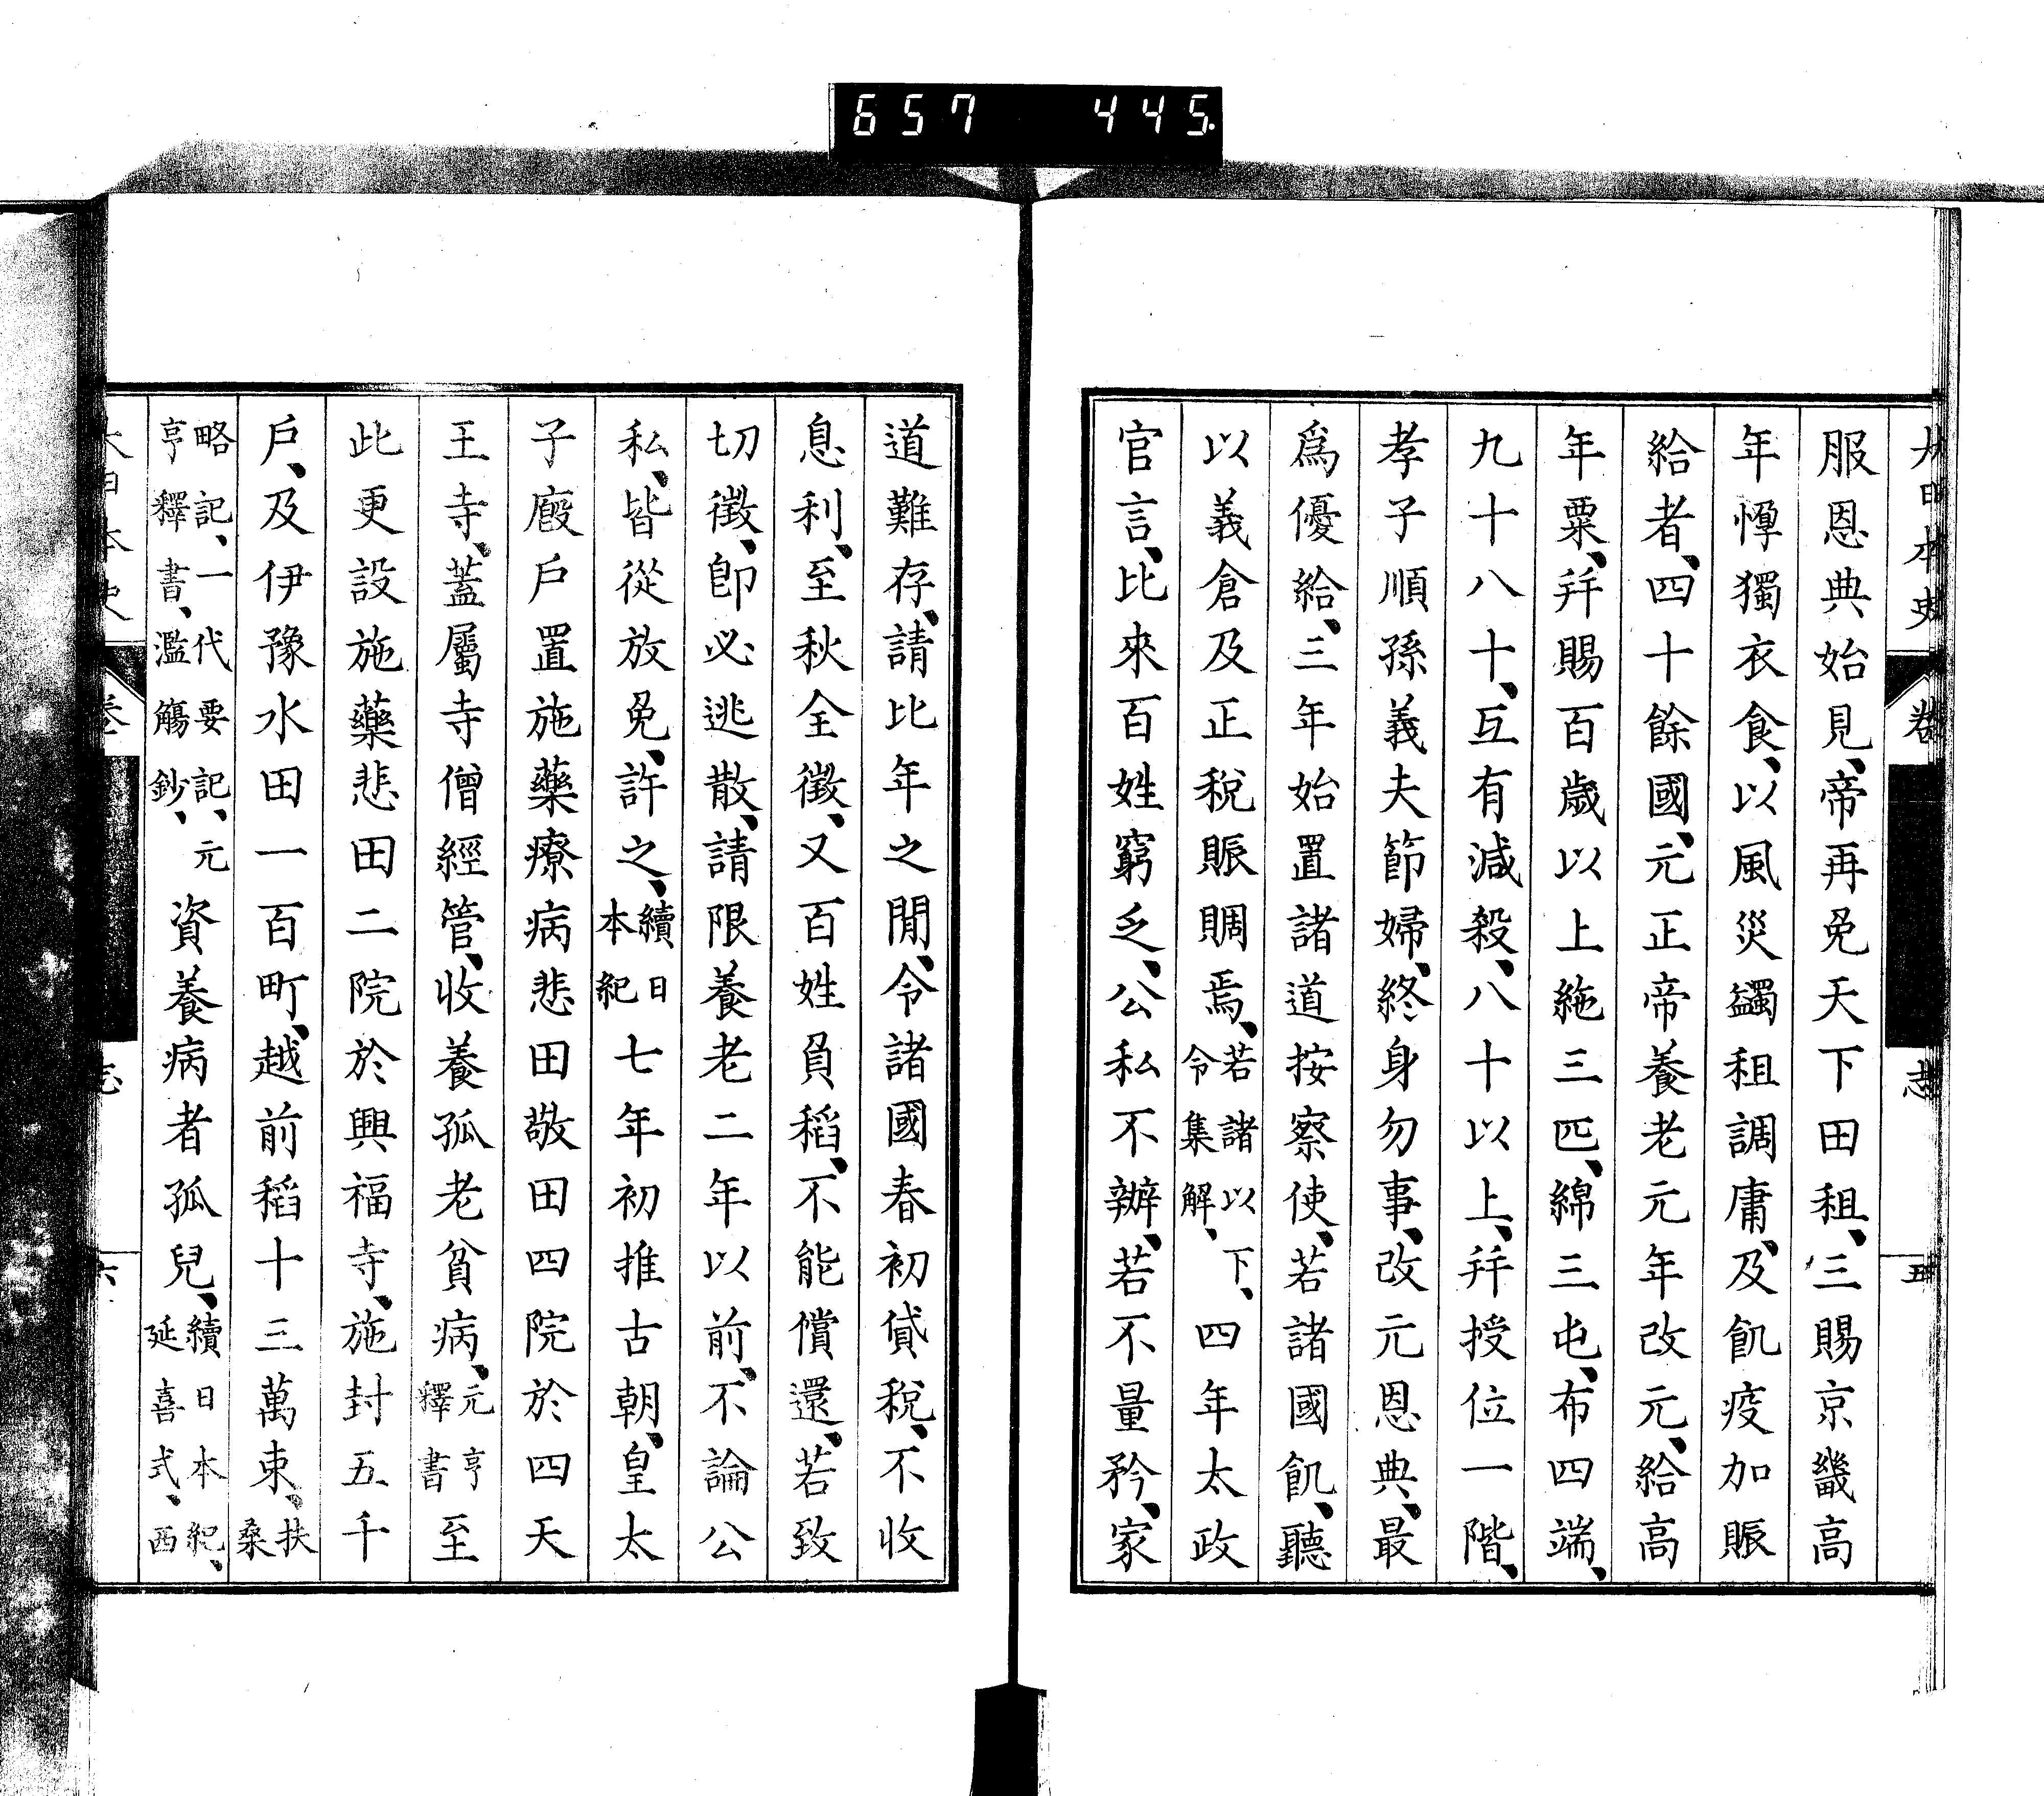 657 445.
大日本史 卷 志 五
服恩典始見、帝再免天下田租、三賜京畿高
年惸獨衣食、以風災蠲租調庸、及飢疫加賑
給者、四十餘國、元正帝養老元年改元、給高
年粟、幷賜百歲以上絁三匹、綿三屯、布四端、
九十八十、互有減殺、八十以上、幷授位一階、
孝子順孫義夫節婦、終身勿事、改元恩典、最
爲優給、三年始置諸道按察使、若諸國飢、聽
以義倉及正稅賑賙焉、若諸以下、令集解、四年太政
官言、比來百姓窮乏、公私不辦、若不量矜、家
道難存、請比年之閒、令諸國春初貸稅、不收
息利、至秋全徵、又百姓負稻、不能償還、若致
切徵、卽必逃散、請限養老二年以前、不論公
私、皆從放免、許之、續日本紀七年初推古朝、皇太
子廐戶置施藥療病悲田敬田四院於四天
王寺、蓋屬寺僧經管、收養孤老貧病、元亨釋書至
此更設施藥悲田二院於興福寺、施封五千
戶、及伊豫水田一百町、越前稻十三萬束、扶桑
略記、一代要記、元亨釋書、濫觴鈔、資養病者孤兒、續日本紀、延喜式、西
大日本史 卷 志 六